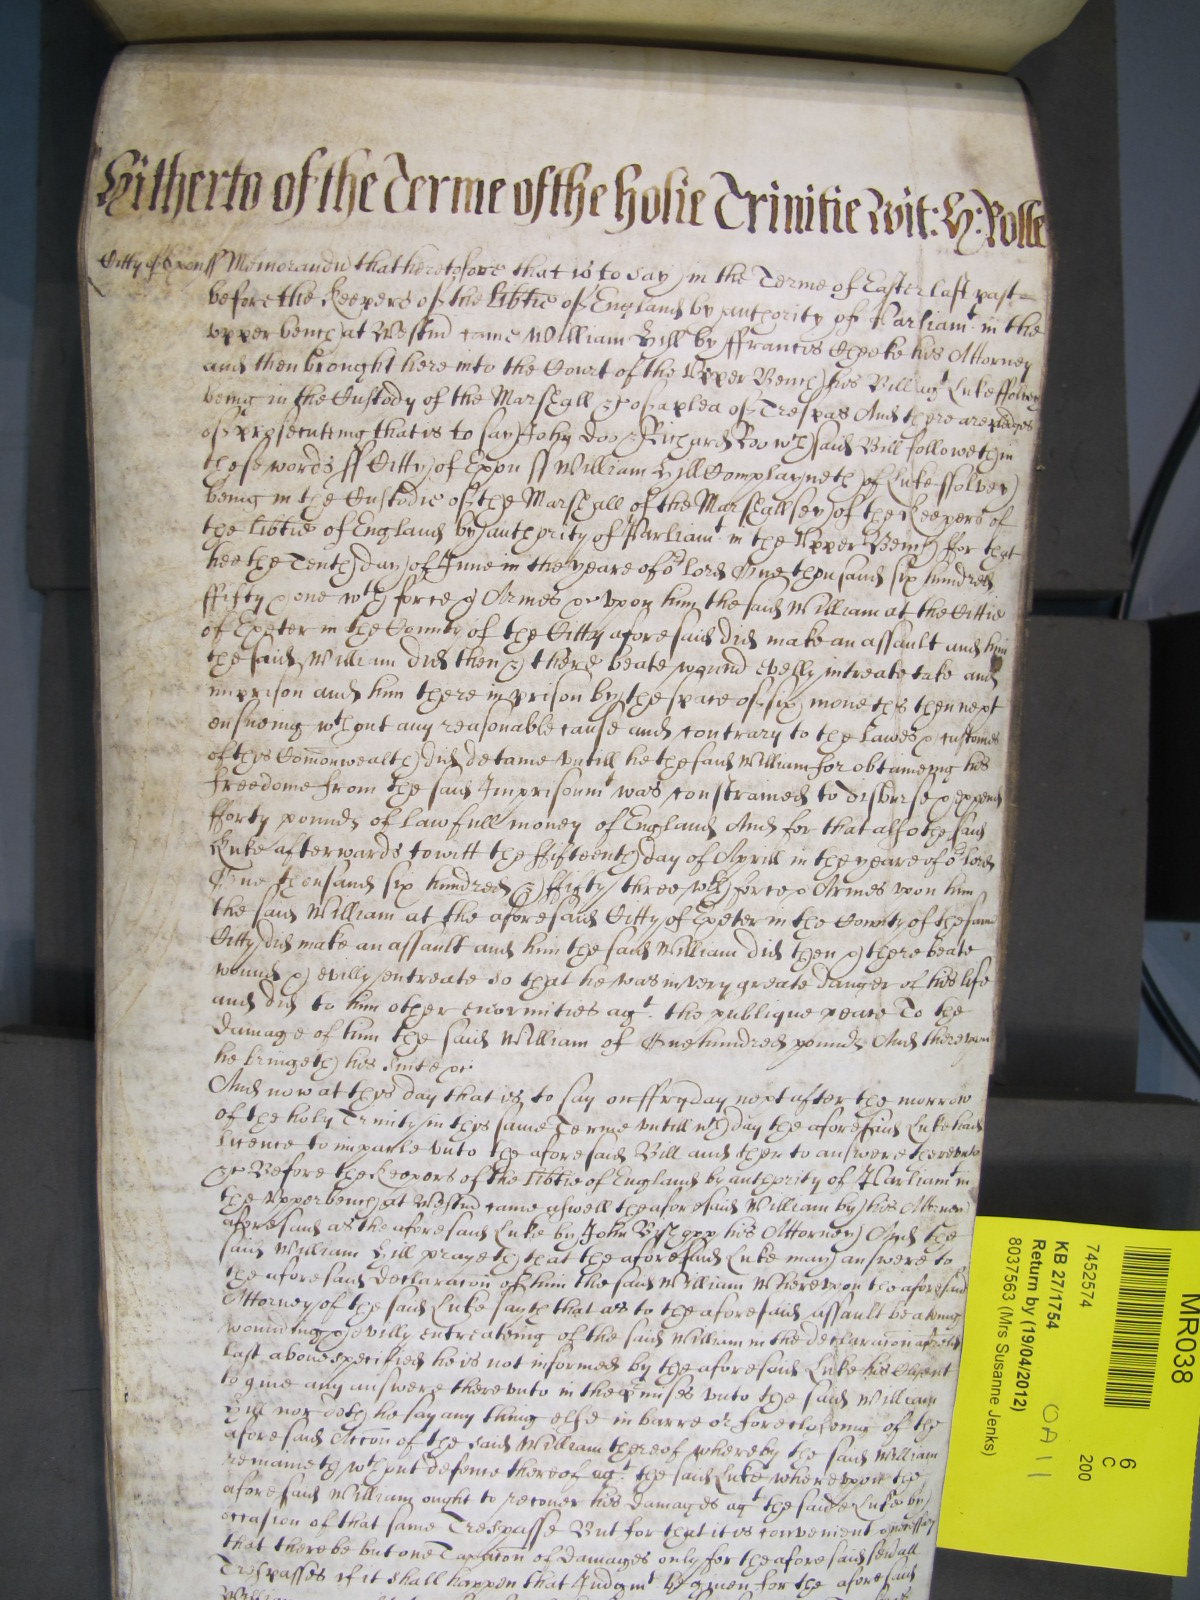 Hitherto of the Terme of the Holie Trinitie Wit: H: Rolle
Citty of Exon ss Memorandu that heretofore that is to say in the Terme of Easter last past
before the Keepers of the libtie of England by authority of Parliamt in the
upper bench at Westm came William Hill by ffrancis Cheeke his Attorney
and then brought here into the Court of the Upper Bench his Bill agt Luke ffolvey
being in the Custody of the Marshall &c of a plea of Trespas And there are pledges
of prosecuting that is to say John Doo & Richard Roo wch said Bill followeth in
these words ss Citty of Exon ss William Hill Complayneth of Luke ffolvey
being in the Custodie of the Marshall of the Marshallsey of the Keepers of
the libtie of England by authority of Parliamt in the Upper Bench for that
hee the Tenth day of June in the yeare of or Lord One thousand six hundred
ffifty & one wth force & Armes &c upon him the said William at the Cittie
of Exeter in the County of the Citty aforesaid did make an assault and him
the said William did then & there beate wound evelly intreate take and
imprison and him there in prison by the space of six moneths then next
ensueing wthout any reasonable cause and contrary to the Lawes & customes
of this Comonwealth did detaine untill he the said William for obtaineing his
freedome from the said Imprisonmt was constrained to disburse & expend
fforty pounds of lawfull money of England And for that also the said
Luke afterwards to witt the ffifteenth day of Aprill in the yeare of or lord
One thousand six hundred & ffifty three wth force & Armes upon him
the said William at the aforesaid Citty of Exeter in the County of the same
Citty did make an assault and him the said William did then & there beate
wound & evilly entreate so that he was in very greate danger of his life
and did to him other enormities agt. the publique peace To the
damage of him the said William of One hundred pounds And thereupon
he bringeth his suite &c
And now at this day that is to say on ffryday next after the morrow
of the holy Trinity in this same Terme untill wch day the aforesaid Luke had
licence to imparle unto the aforesaid Bill and then to answere thereunto
&c Before the Keepers of the libtie of England by authority of Parliamt in
the upper bench at Westm came aswell the aforesaid William by his Attorney
aforesaid as the aforesaid Luke by John his Attorney And the
said William Hill prayeth that the aforesaid Luke may answere to
the aforesaid declaracon of him the said William Whereupon the aforesaid
Attorney of the said Luke sayth that as to the aforesaid assault beateing
wounding & evilly entreateing of the said William in the declaracon aforesaid
last above specified he is not informed by the aforesaid Luke his Clyent
to give any answere thereunto in the pmises unto the said William
Hill nor doth he say any thing else in barre or forecloseing of the
aforesaid Accon of the said William thereof whereby the said William
remaineth wthout defence thereof agt. the said Luke whereupon the
aforesaid William ought to recover his damages agt the said Luke by
occasion of that same Trespasse But for that it is convenient & necessary
that there be but one Taxacon of damages only for the aforesaid sevall
Trespasses if it shall happen that Judgmt be given for the aforesaid
MR038
6
C
200
7452574
KB 27/1754
Return by (19/04/2012)
8037563 (Mrs Susanne Jenks)